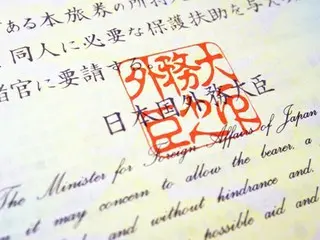 ある本旅券の所持
同人に必要な保護扶助を与え
者官に要請する。
外務大
日本国外務大臣
The Minister for Foreign Affairs of Japan
it may concern to allow the bearer, a
and without hindrance and,
possible aid and